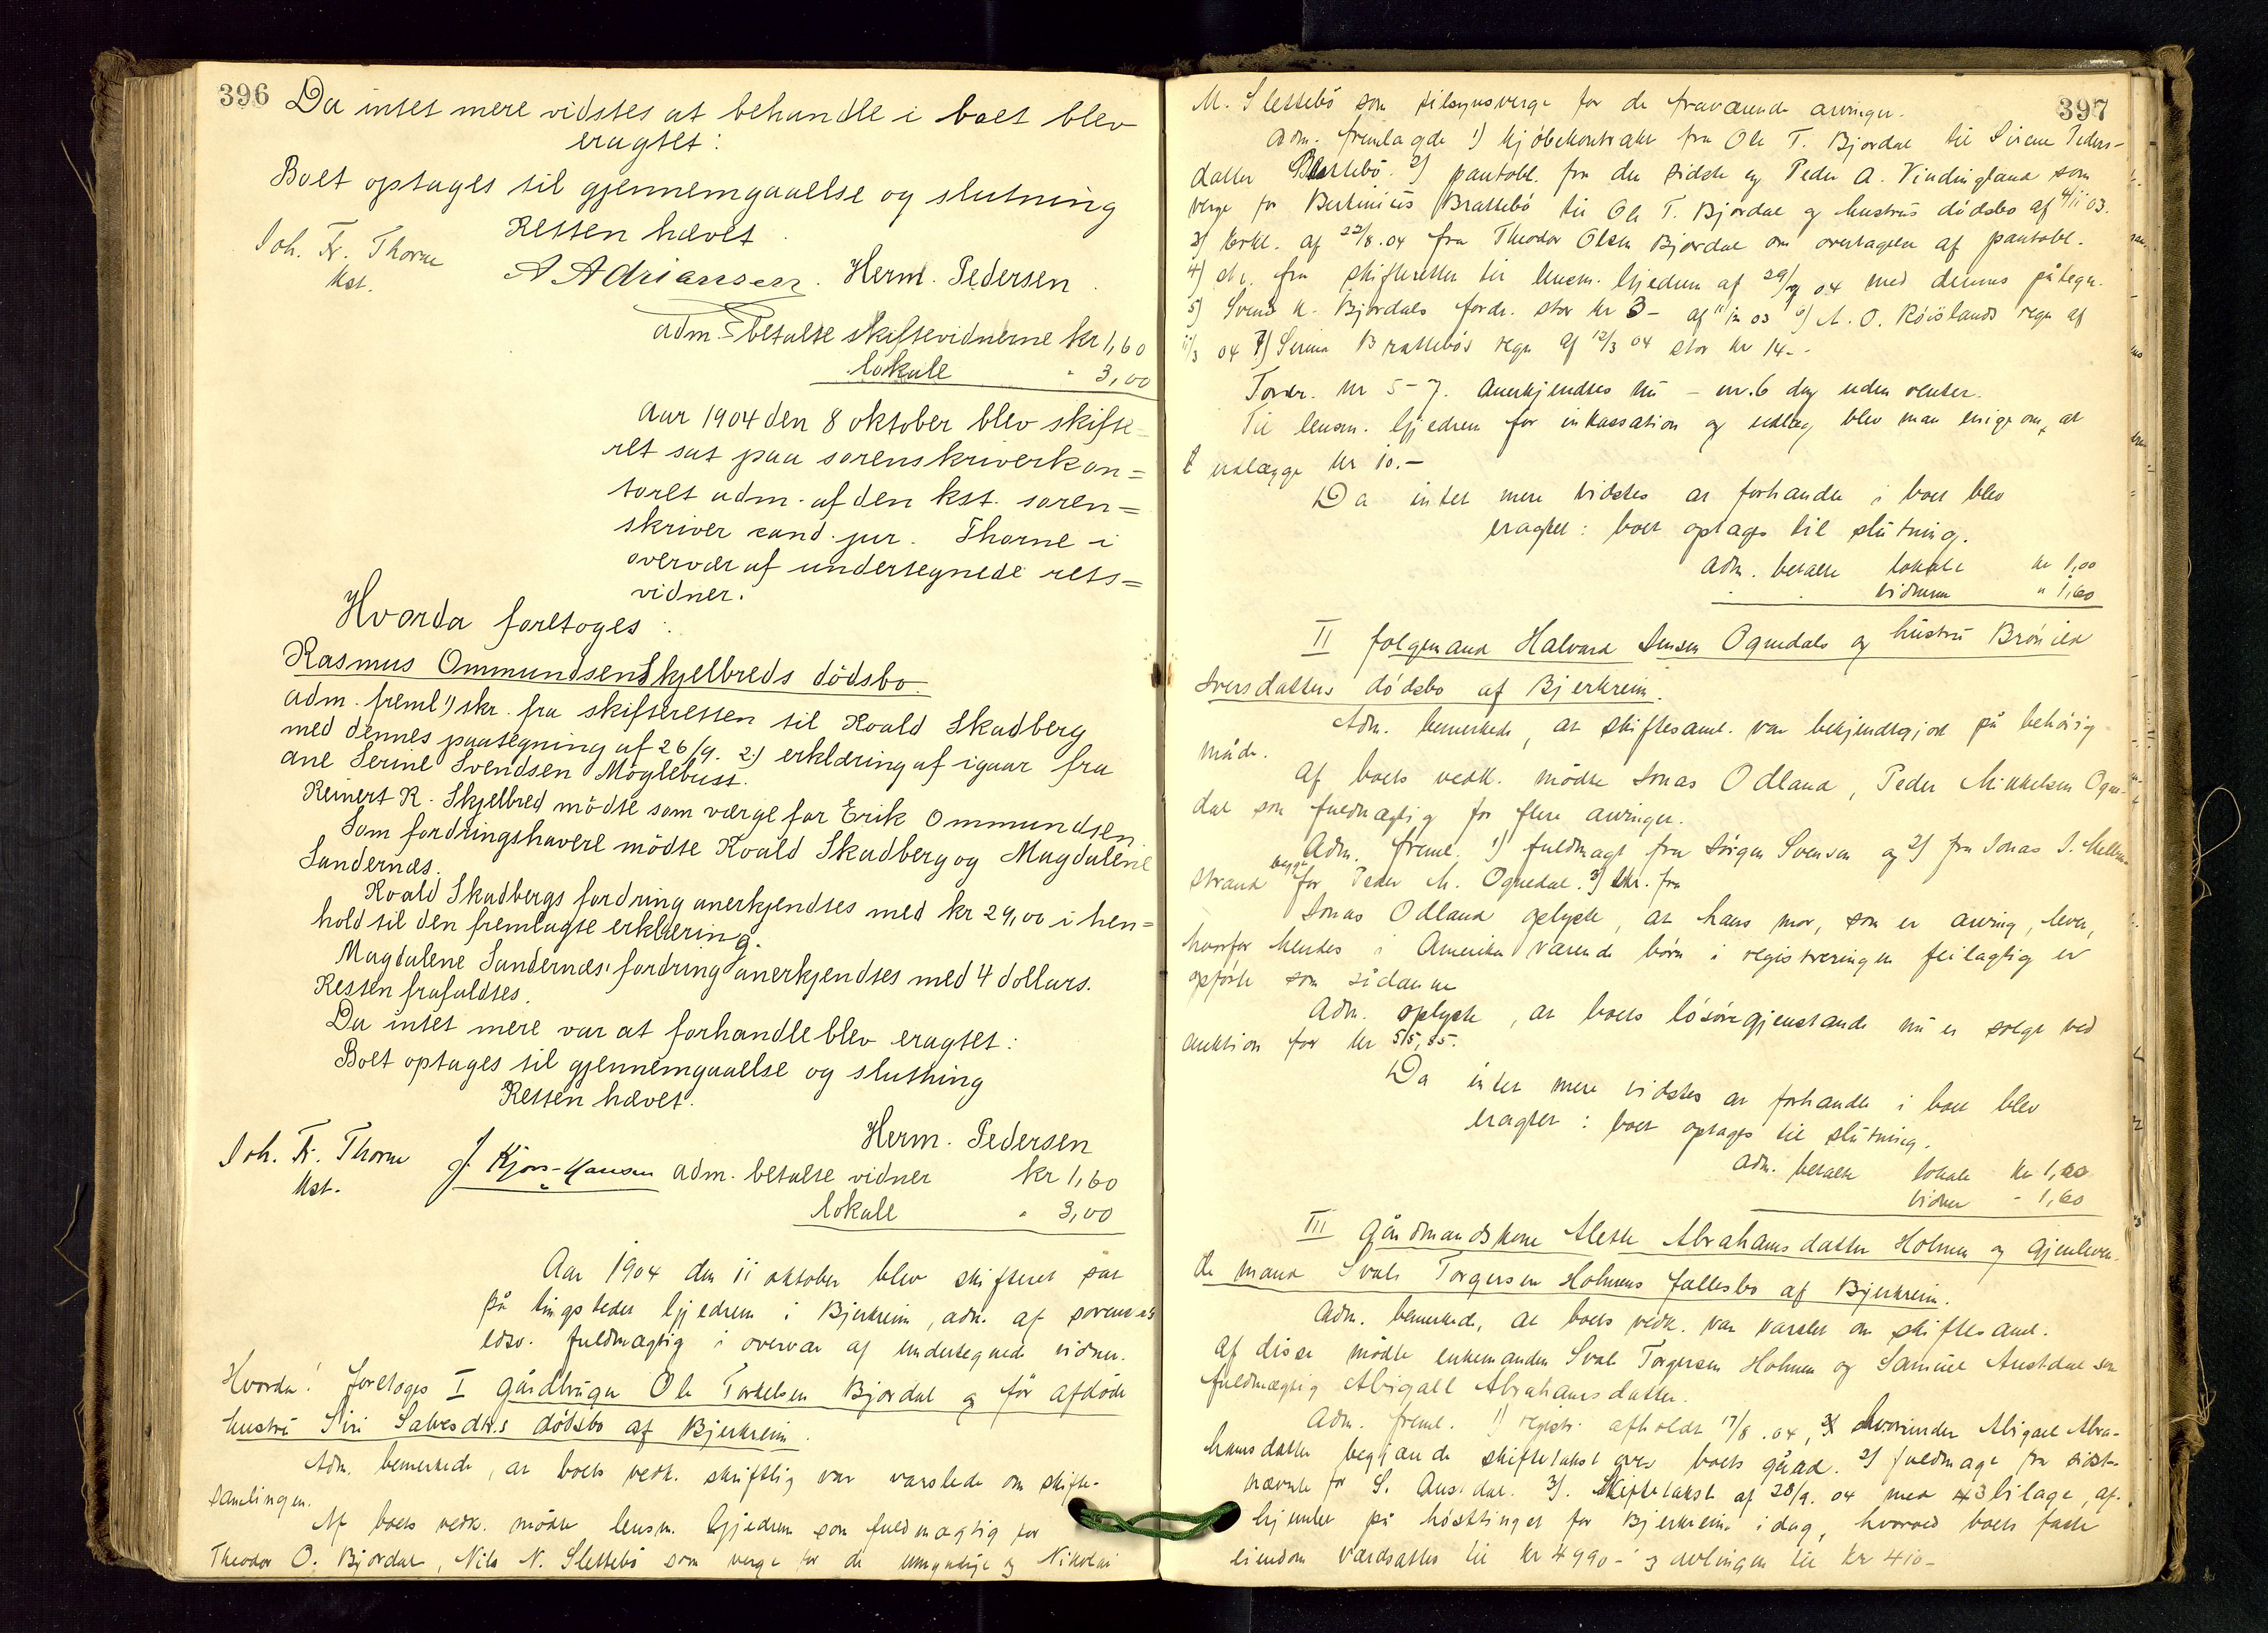 396
Da intet mere vidstes at behandle i boet blev
eragtet:
Boet optages til gjennemgaaelse og slutning
Retten hævet.
Joh. Fr. Thorne
kst.
A Adriansen. Herm. Pedersen.
adm. betalte skiftevidnerne kr 1,60
lokale " 3,00
Aar 1904 den 8 oktober blev skifte-
ret sat paa sorenskriverkon=
toret adm. af den kst. soren=
skriver cand. jur. Thorne i
overvær af undertegnede rets=
vidner.
Hvorda foretoges:
Rasmus Ommundsen Skjelbreds dödsbo.
adm. freml 1) skr. fra skifteretten til Roald Skadberg
med dennes paategning af 26/9. 2) erklæring af igaar fra
ane Serine Svendsen Möglebust.
Reinert R. Skjelbred mödte som værge for Erik Ommundsen
Som fordringshavere mödte Roald Skadberg og Magdalene
Sandernæs.
Roald Skadbergs fordring anerkjendtes med kr 29,00 i hen=
hold til den fremlagte erklæring.
Magdalene Sandernæs' fordring anerkjendtes med 4 dollars.
Resten frafaldtes.
Da intet mere var at forhandle blev eragtet:
Boet optages til gjennemgaaelse og slutning
Retten hævet.
Joh. Fr. Thorne
kst.
Herm. Pedersen
J. Kjørs-Hansen adm. betalte vidner kr 1,60
lokale " 3,00
Aar 1904 den 11 oktober blev skifteret sat
på tingstedet Gjedrem i Bjerkreim, adm. af sorenskr
edsv. fuldmægtig i overvær af undertegnede vidner.
Hvorda: foretoges I gårdbruger Ole Torkelsen Bjordal og før afdöde
hustru Siri Salvesdtr.s dödsbo af Bjerkreim.
Adm. bemerkede, at boets vedk. skriftlig var varslede om skifte-
samlingen.
Af boets vedk. mödte lensm. Gjedrem som fuldmægtig for
Theodor O. Bjordal, Nils N. Slettebö som verge for de umyndige og Nikolai
397
M. Slettebö som tilsynsverge for de fraværende arvinger.
Adm. fremlagde 1) kjöbekontrakt fra Ole T. Bjordal til Sirene Peders-
datter Brattebö. 2) pantobl. fra den sidste og Peder A. Vindingland som
verge for Bertinius Brattebö til Ole T. Bjordal og hustrus dödsbo af 4/11 03.
3) Erkl. af 22/8.04 fra Theodor Olsen Bjordal om overtagelse af pantobl.
4) skr. fra skifteretten til lensm. Gjedrem af 29/9 04 med dennes påtegn.
5) Svend K. Bjordals fordr. stor kr 3- af 11/12 03 6) A. O. Röislands regn af
11/3 04 7) Sirene Brattebös regn af 12/3 04 stor kr 14.-
Fordr. nr 5-7. anerkjendtes nu - nr. 6 dog uden renter.
Til lensm. Gjedrem for inkassation og udlæg blev man enige om, at
udlægge kr 10.-
Da intet mere vidstes at forhandle i boet blev
eragtet: boet optages til slutning.
Adm. betalte lokale kr 1,00
vidnerne " 1,60
II folgemand Halvard Jensen Ognedals og hustru Brönild
Sversdatters dödsbo af Bjerkreim.
Adm. bemerkede, at skiftesaml. var bekjendtgjort på behörig
måde.
Af boets vedk. mödte Jonas Odland, Peder Mikkelsen Ogne-
dal som fuldmægtig for flere arvinger.
Adm. freml. 1) fuldmagt fra Jörgen Svensen og 2) fra Jonas J. Mellem-
strand begge for Peder M. Ognedal. 3) skr. fra
Jonas Odland oplyste, at hans mor, som er arving, lever,
hvorfor hendes i Amerika værende börn i registreringen feilagtig er
opförte som sådanne
Adm. oplyste, at boets lösöregjenstande nu er solgt ved
auktion for kr 515,85.
Da intet mere vidstes at forhandle i boet blev
eragtet: boet optages til slutning.
Adm. betalte lokale kr 1,00
vidner - 1,60
III Gårdmandskone Alette Abrahamsdatter Holmen og gjenleven-
de mand Svale Torgersen Holmens fællesbo af Bjerkreim.
Adm. bemerkede, at boets vedk. var varslet om skiftesaml.
Af disse mödte enkemanden Svale Torgersen Holmen og Samuel Austdal som
fuldmægtig Abigael Abrahamsdatter.
Adm. freml. 1) registr. afholdt 17/8.04, hvorunder Abigael Abra-
hamsdatter begjærede skiftetakst over boets gård. 2) fuldmagt fra sidst-
nævnte for S. Austdal. 3). Skiftetakst af 28/9.04 med 3 bilage, af-
hjemlet på hösttinget for Bjerkreim idag, hvorved boets faste
eiendom værdsattes til kr 4990- og avlingen til kr 410-